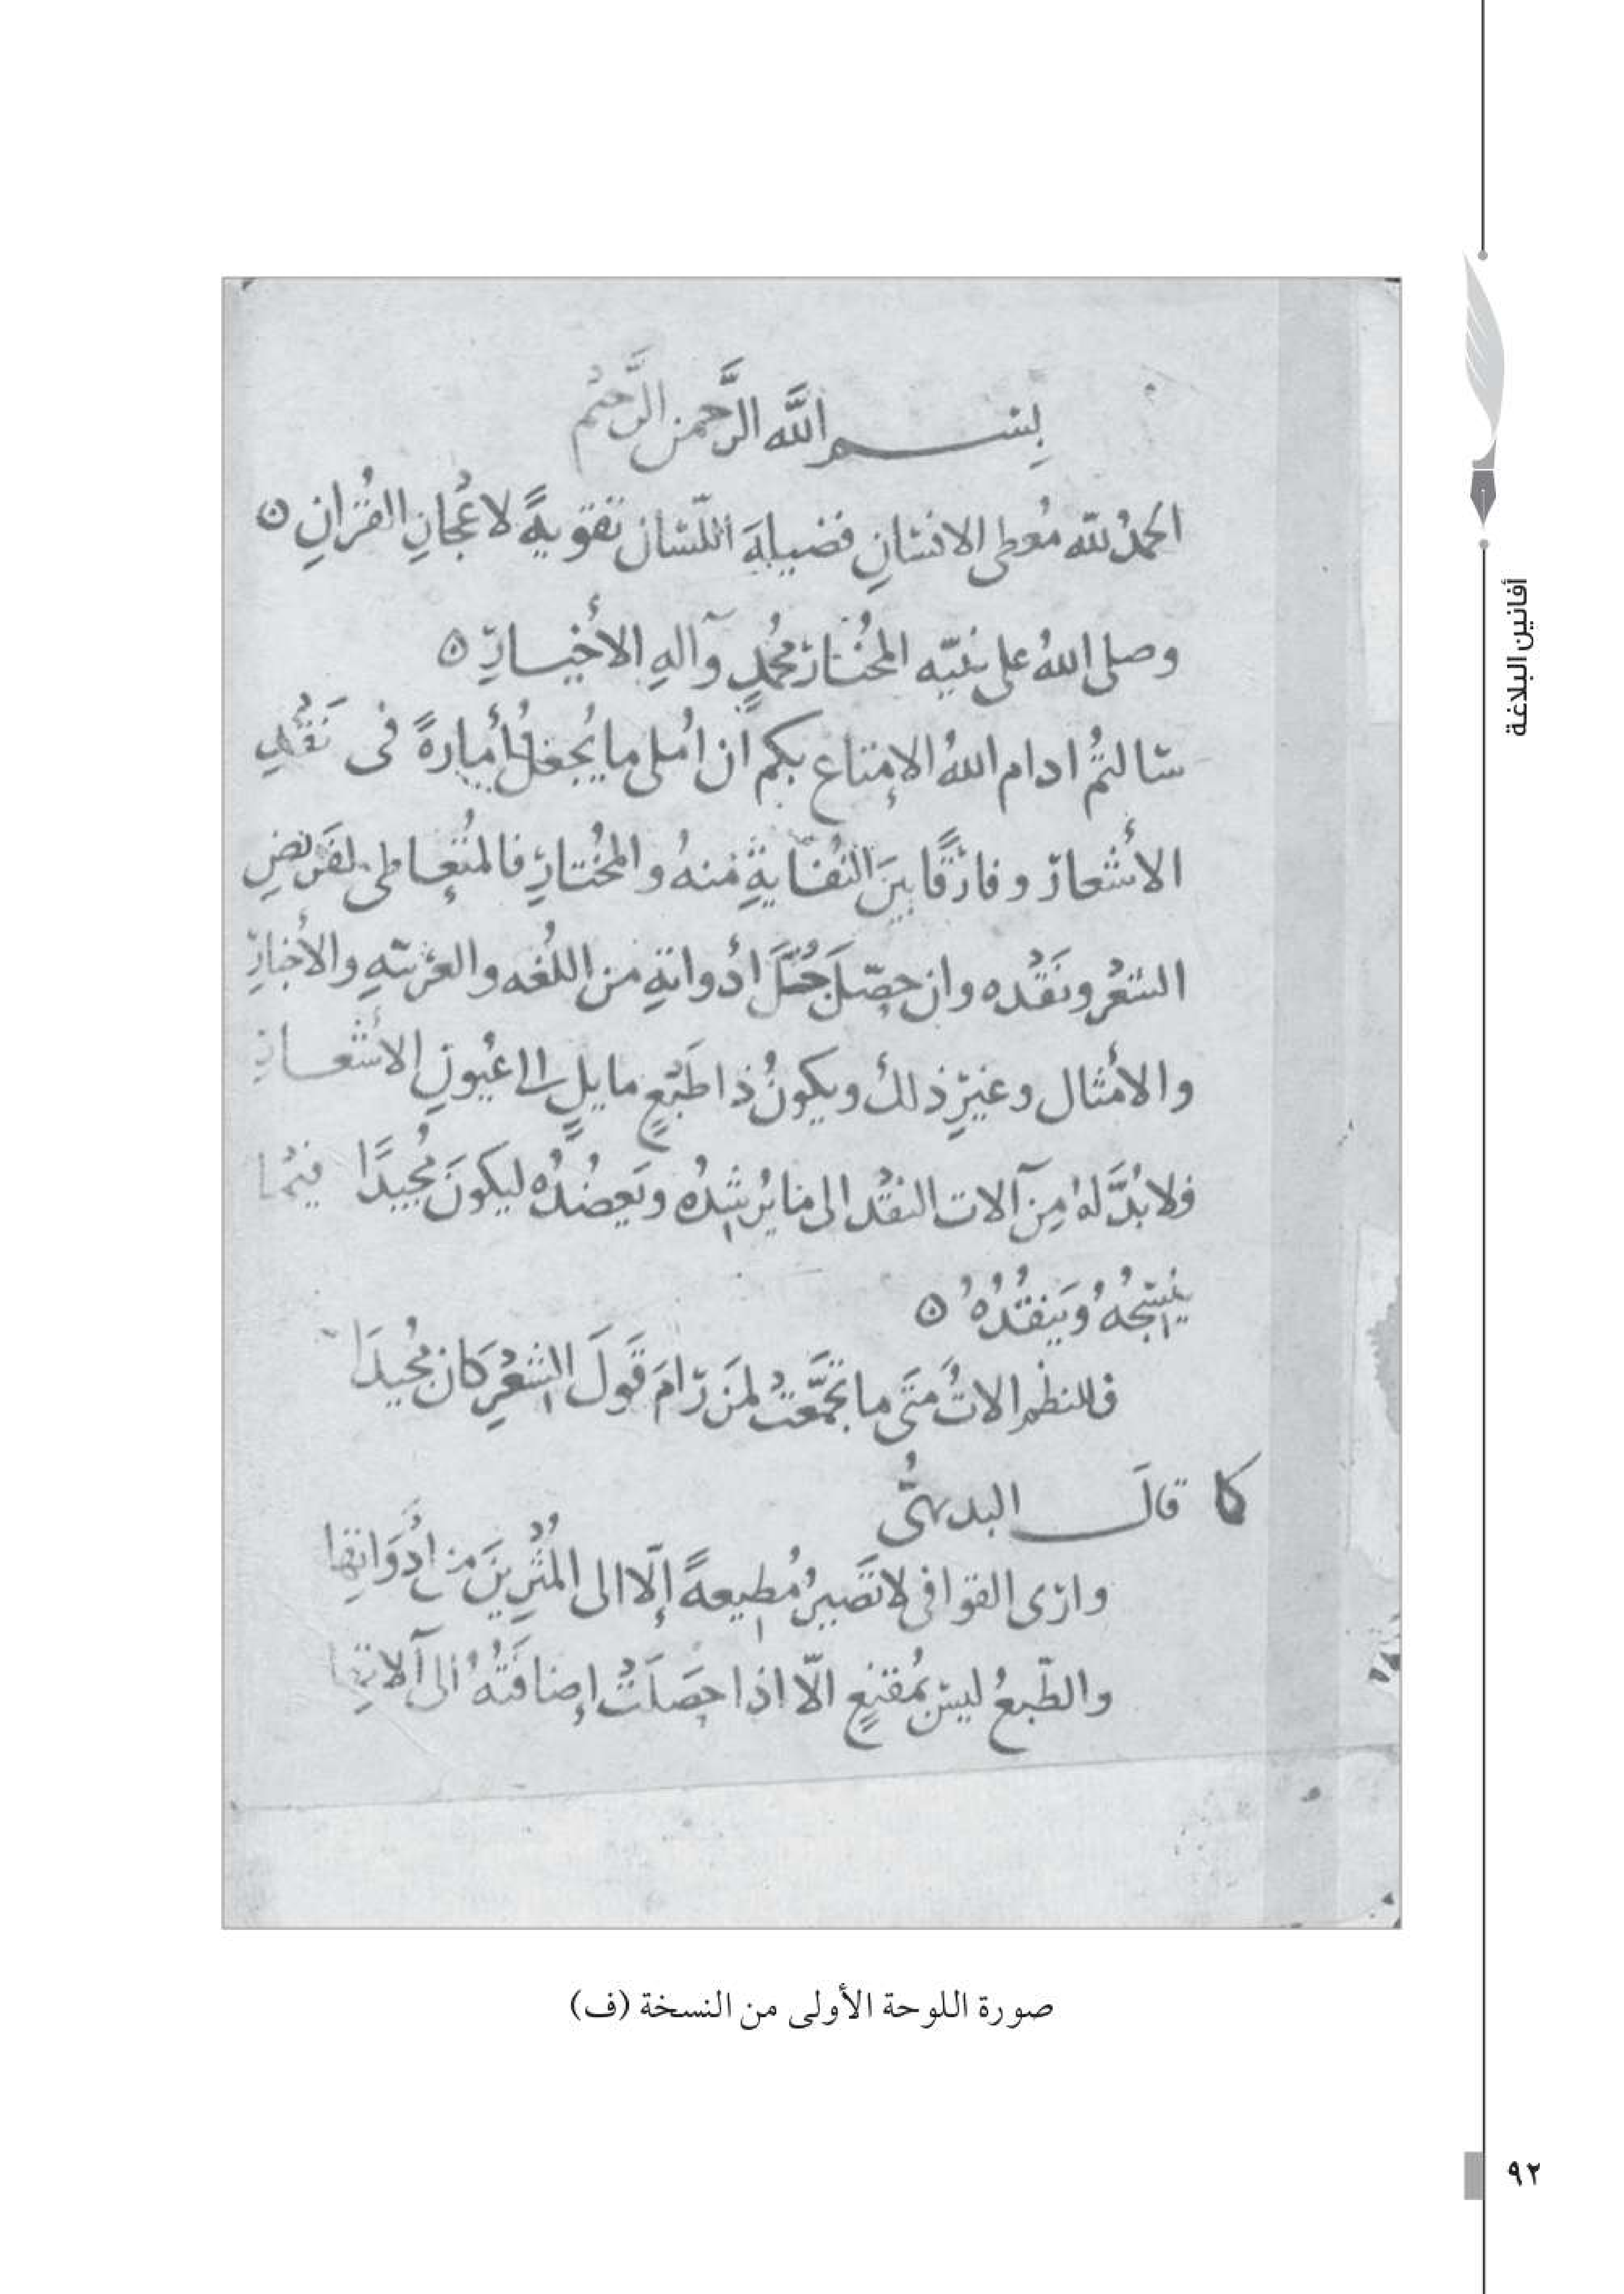 بِسْمِ اللَّه الرَّحمن الرَّحيْم
الحمدُ للّه مُعطى الانسَانِ فضيلةَ اللّسَان تقويةً لاعْجازِ القُرْانِ ه
وصلى اللهُ على نبيّه المخُتَار محُمدٍ وآلهِ الأخْيــارِ ه
سَالتمُ ادام اللهُ الإمتاع بكم ان امُلى ما يُجعَلُ أمارةً فى نَقْدِ
الأشْعار وفارقًا بينَ النُفَايةِ منهُ والمخُتارِ فالمُتَعَاطى لقَريضِ
الشعْر ونَقْده وان حصّلَ جُمَلَ أدْواتهِ من اللُغه والعَرْبيّهِ والأخبارِ
والأمثال وغيْرِ ذلكَ ويكونُ ذا طَبْعٍ مايلٍ الى عُيونِ الأشْعــارِ
فلابُدَّ لهُ مِن آلات النقْد الى ما يُرْشِدُه ويَعضُدُه ليكونَ مُجيدًا فيمْا
ينسجُهُ ويَنقُدُهُ ه
فللنظم الاتٌ مَتَى ما تجَمَّعَتْ لمَن رَامَ قَولَ الشِعْرِ كان مُجيدَا
كما قالَ البديهىُّ
وارَى القوافى لا تَصيرُ مُطيعةً إلّا الى المُثْرِينَ من ادَوَاتِها
والطّبعُ ليسَ بمُقنِعٍ الّا اذا حَصَلَتْ إضافَتُهُ الى آلاتِها
صورة اللوحة الأولى من النسخة (ف)
أفانين البلاغة
٩٢